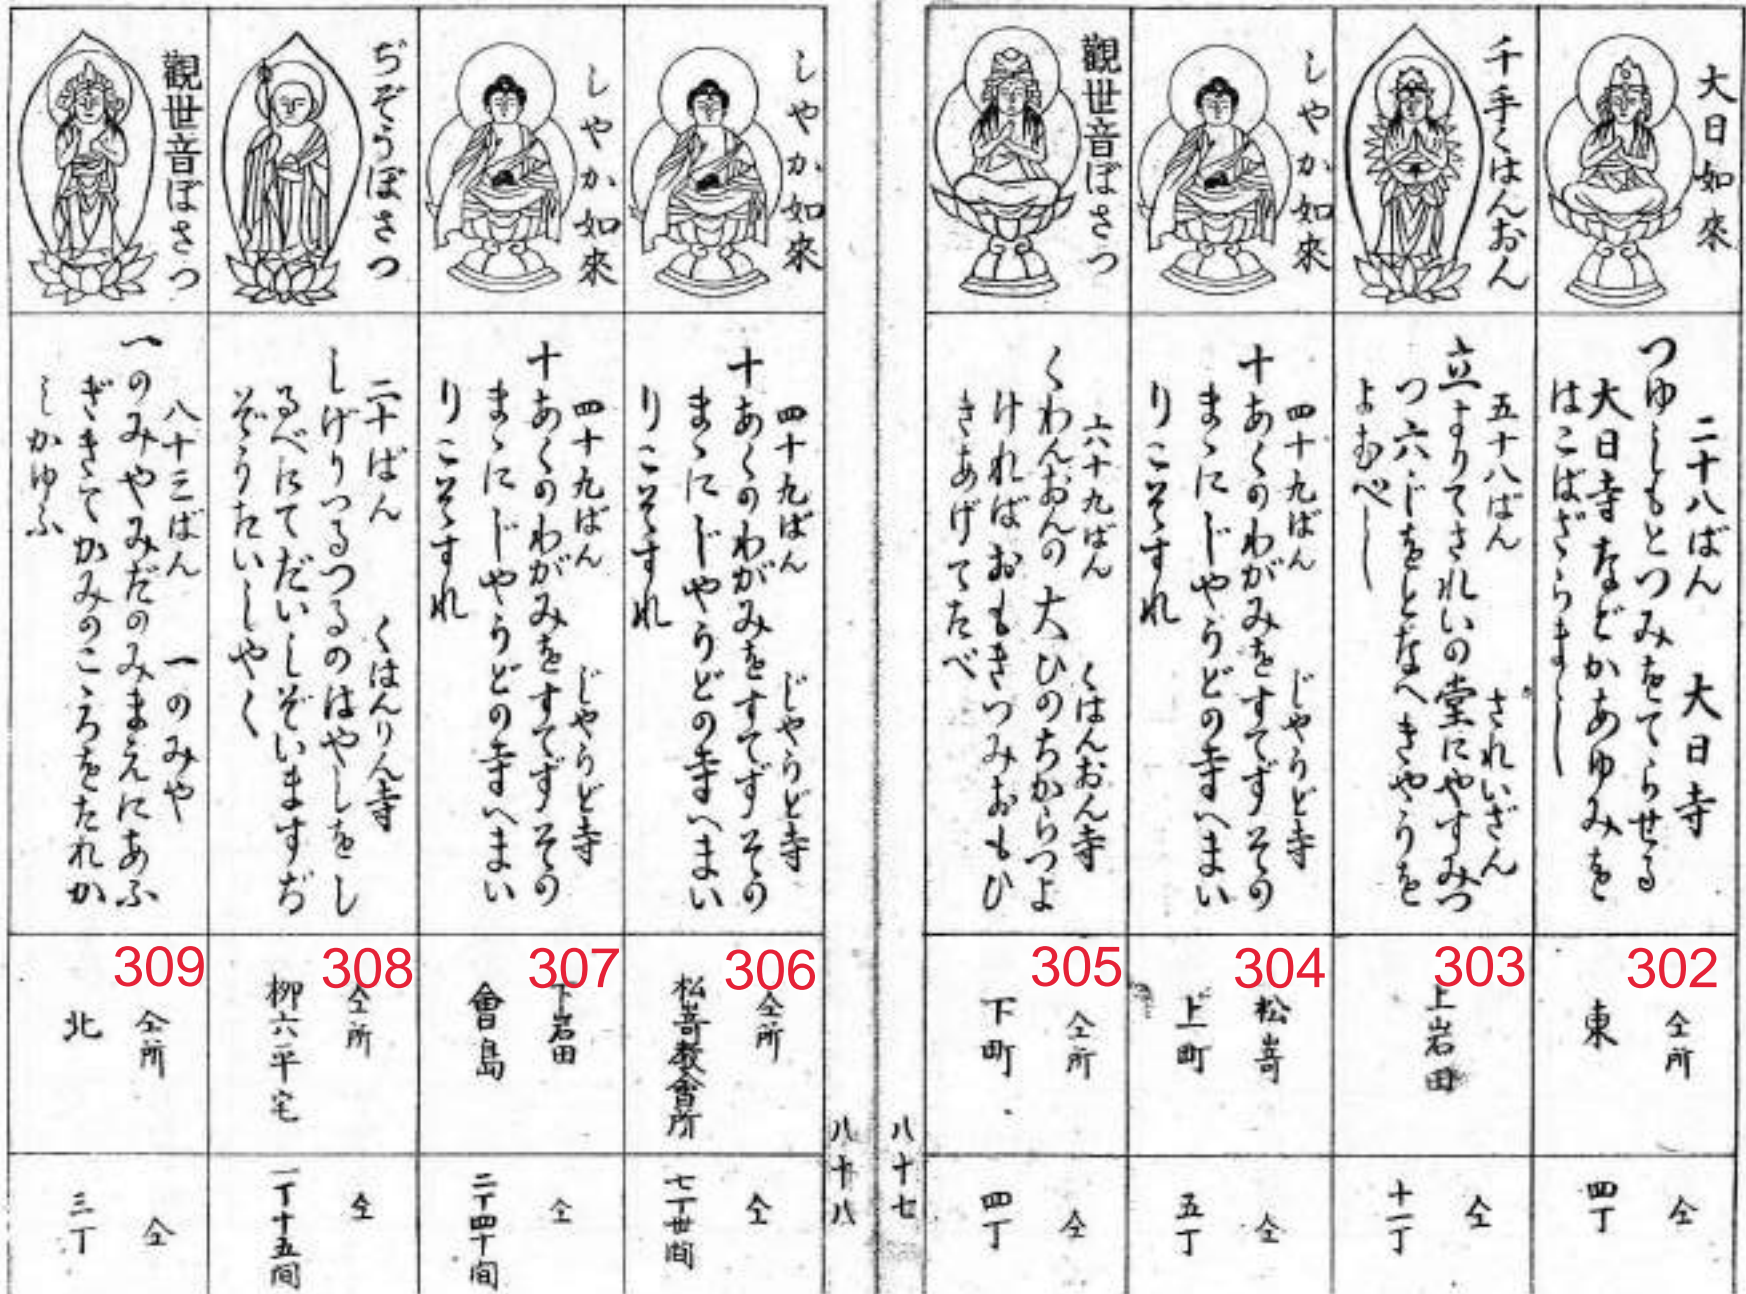 大日如來
二十八ばん 大日寺
つゆしもとつみをてらせる
大日寺などかあゆみを
はこばざらまし
302
仝所
東
仝
四丁
千手くはんおん
五十八ばん されいざん
立よりてされいの堂にやすみつ
つ六じをとなへきやうを
よむべし
303
上岩田
仝
十一丁
しやか如來
四十九ばん じやうど寺
十あくのわがみをすてずその
まゝにじやうどの寺へまい
りこそすれ
304
松嵜
上町
仝
五丁
觀世音ぼさつ
六十九ばん くはんおん寺
くわんおんの大ひのちからつよ
ければおもきつみおもひ
きあげてたべ
305
仝所
下町
仝
四丁
八十七
八十八
しやか如來
四十九ばん じやうど寺
十あくのわがみをすてずその
まゝにじやうどの寺へまい
りこそすれ
306
仝所
松嵜教會所
仝
七丁丗間
しやか如來
四十九ばん じやうど寺
十あくのわがみをすてずその
まゝにじやうどの寺へまい
りこそすれ
307
下岩田
會島
仝
二丁四十間
ぢぞうぼさつ
二十ばん くはんりん寺
しげりつるつるのはやしをし
るべにてだいしぞいますぢ
ぞうたいしやく
308
仝所
柳六平宅
仝
一丁十五間
觀世音ぼさつ
八十三ばん 一のみや
一のみやみだのみまえにあふ
ぎきてかみのこゝろをたれか
しかゆふ
309
仝所
北
仝
三丁